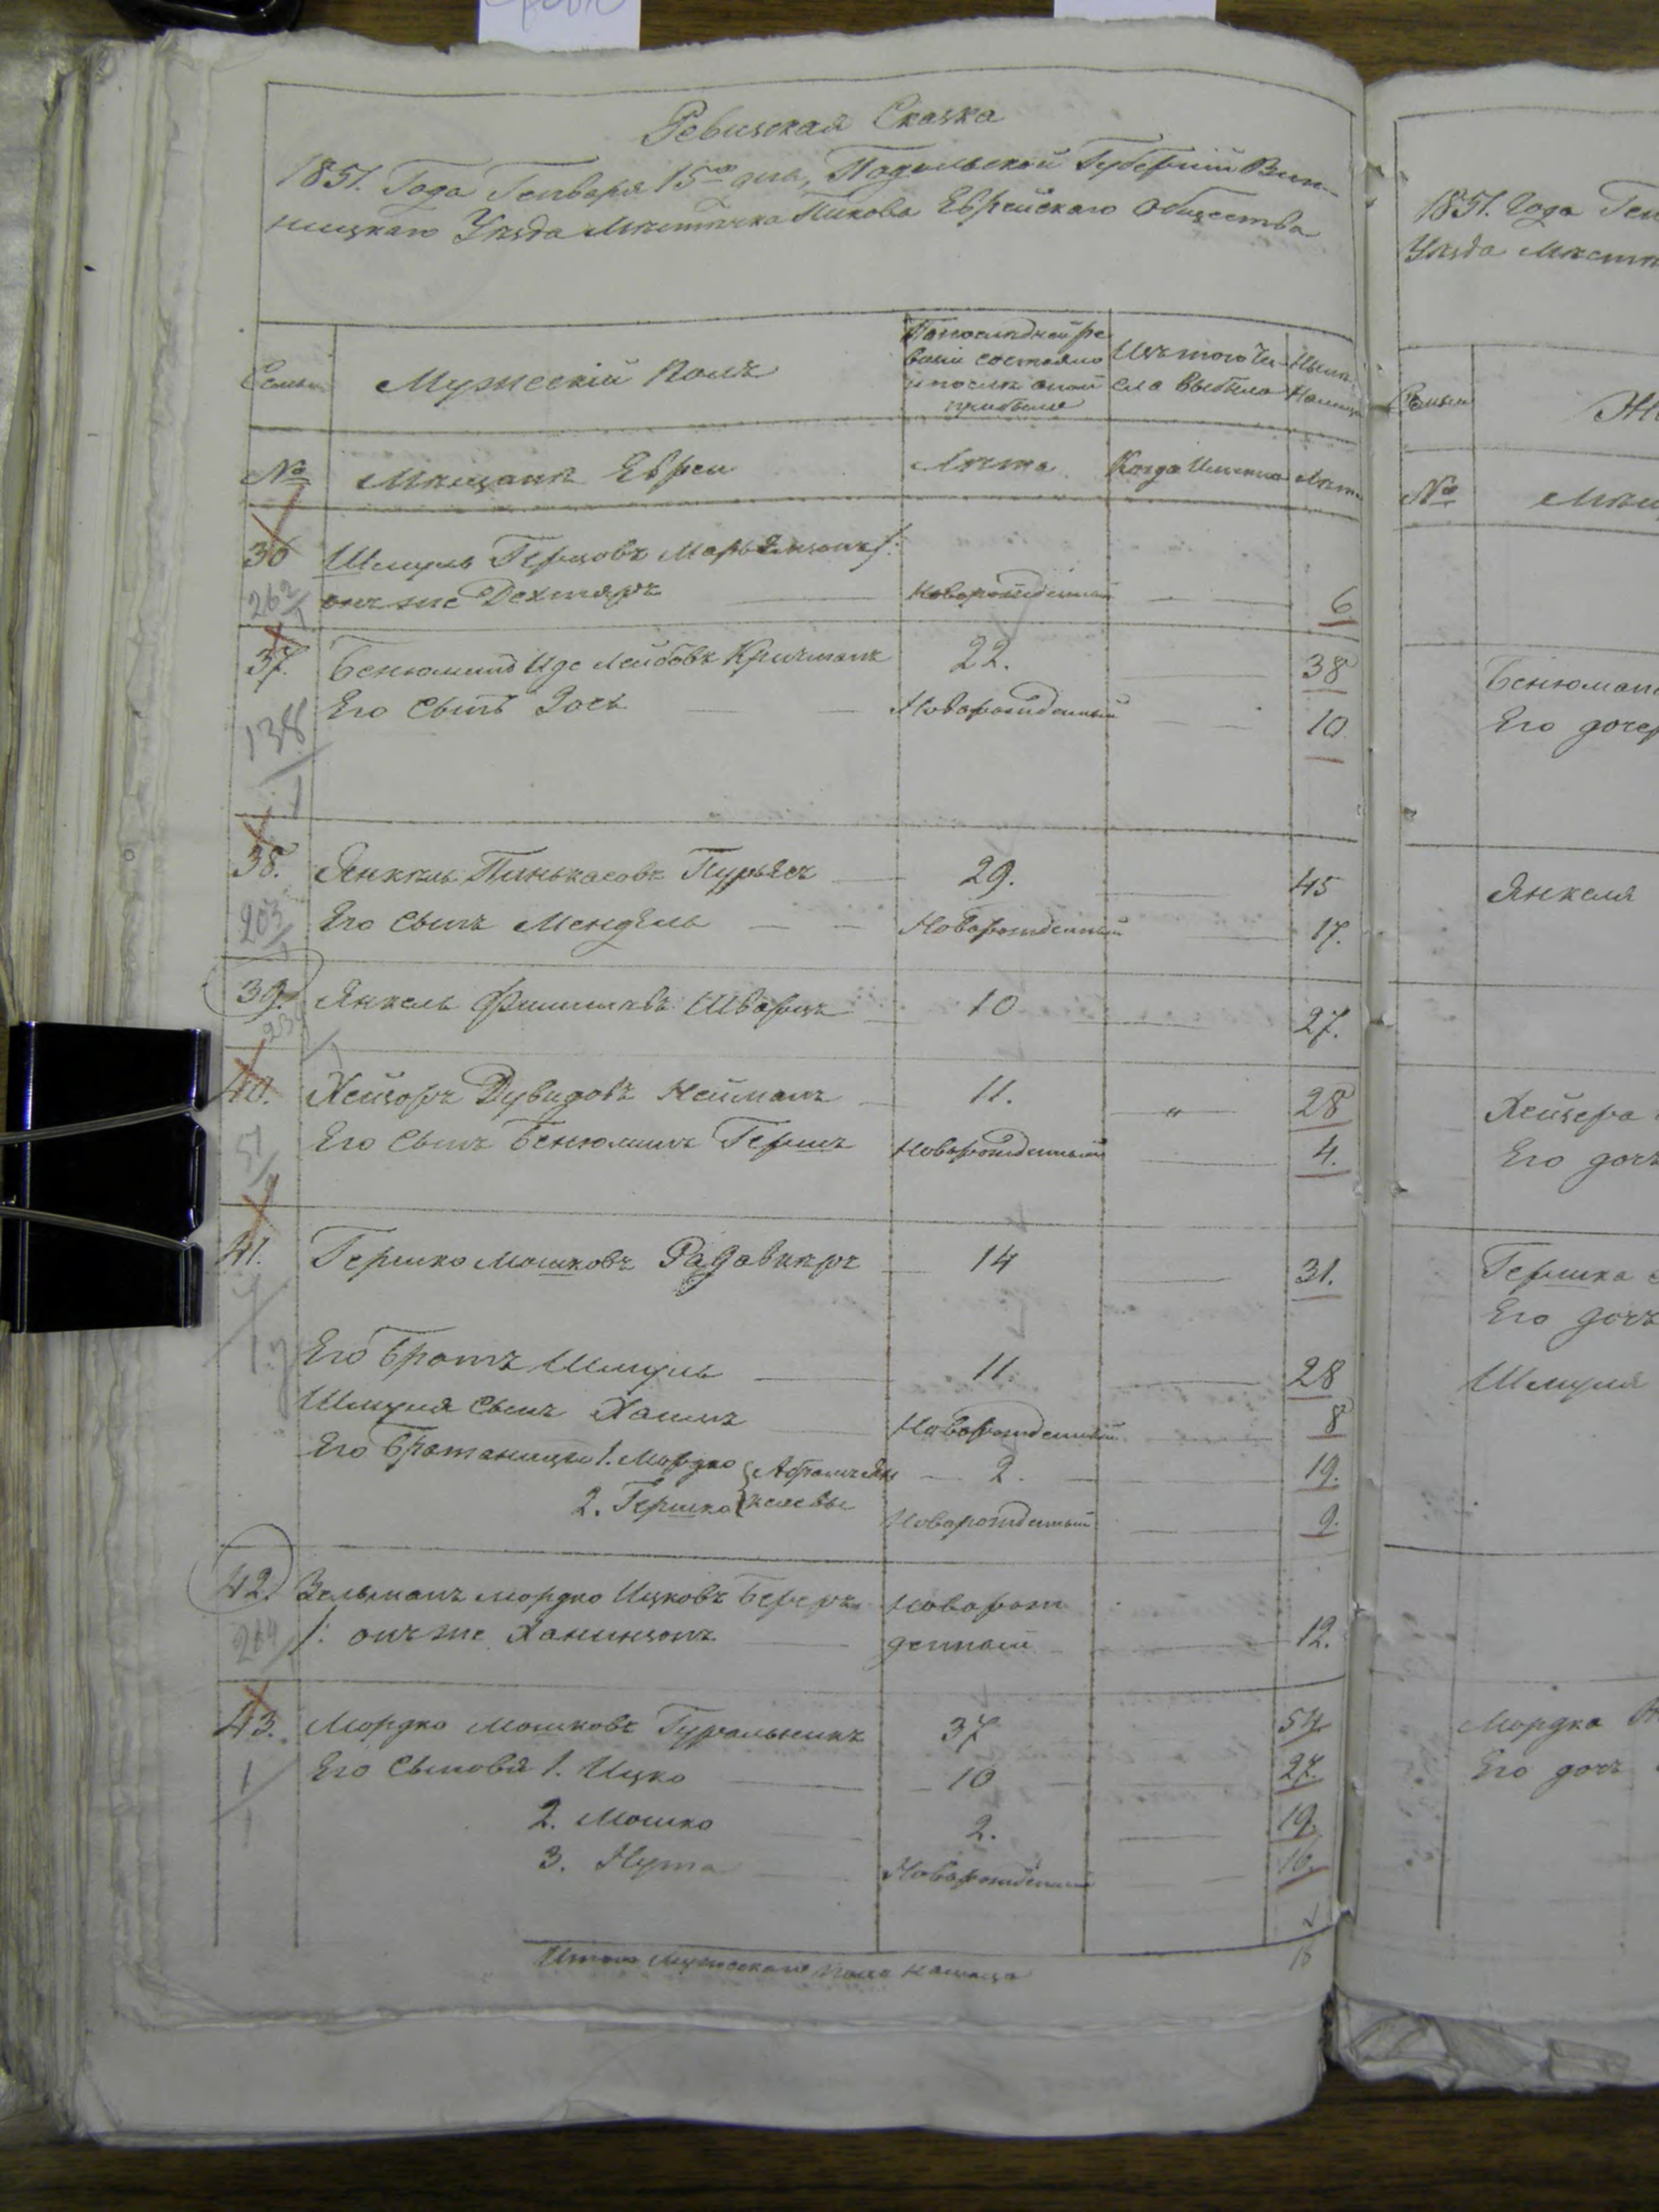 Ревизская Сказка
1851. Года Генваря 15го дня, Подольской Губернии Вин-
ницкаго Уезда Местечка Пикова Еврейскаго Общества
Семьи
Мужеский полъ
По последней ре
визии состояло
и после оной
прибыло
Изъ того чи-
сла выбыло
Ныне
Налицо
№ Мещане Евреи Лета Когда Именно Лета
36 Шмуль Герцовъ /:
262/1 онъ же Дехтяръ Новорожденный 6
37. Бенюминъ Идс Лейбовъ Кричманъ 22. 38
Его Сынъ Зось Новорожденный 10
138/1
38. Янкель Пинькасовъ Пурысъ 29. 45
203/1 Его Сынъ Мендель Новорожденный 17.
39. Янкель Фишилевъ Шварцъ 10 27.
40. Хейзоръ Дувидовъ Нейманъ 11. " 28
51/ Его Сынъ Бенюминъ Гершъ Новорожденный 4.
41. Гершко Мошковъ 14 31.
Его Братъ Шмуль 11. 28
Шмуля Сынъ Хаимъ Новорожденный 8
Его Братаницы 1. Мордко Абрамъ Ян 2. 19.
2. Гершко келевы Новорожденный 9.
42. Зельманъ Мордко Ицковъ Береръ Новорож
264/1 /: онъ же Ханинзонъ денный 12.
43. Мордко Мошковъ Гуральникъ 37 54
1/1 Его Сыновья 1. Ицко 10 27.
2. Мошко 2. 19.
3. Нута Новорожденный 16.
Итого Мужескаго пола налицо 18
1851. Года Ген
Уезда Мест
Семьи
Же
№ Мещ
Бенюмин
Его дочер
Янкеля
Хейзера
Его дочь
Гершка
Его дочь
Шмуля
Мордка
Его дочь